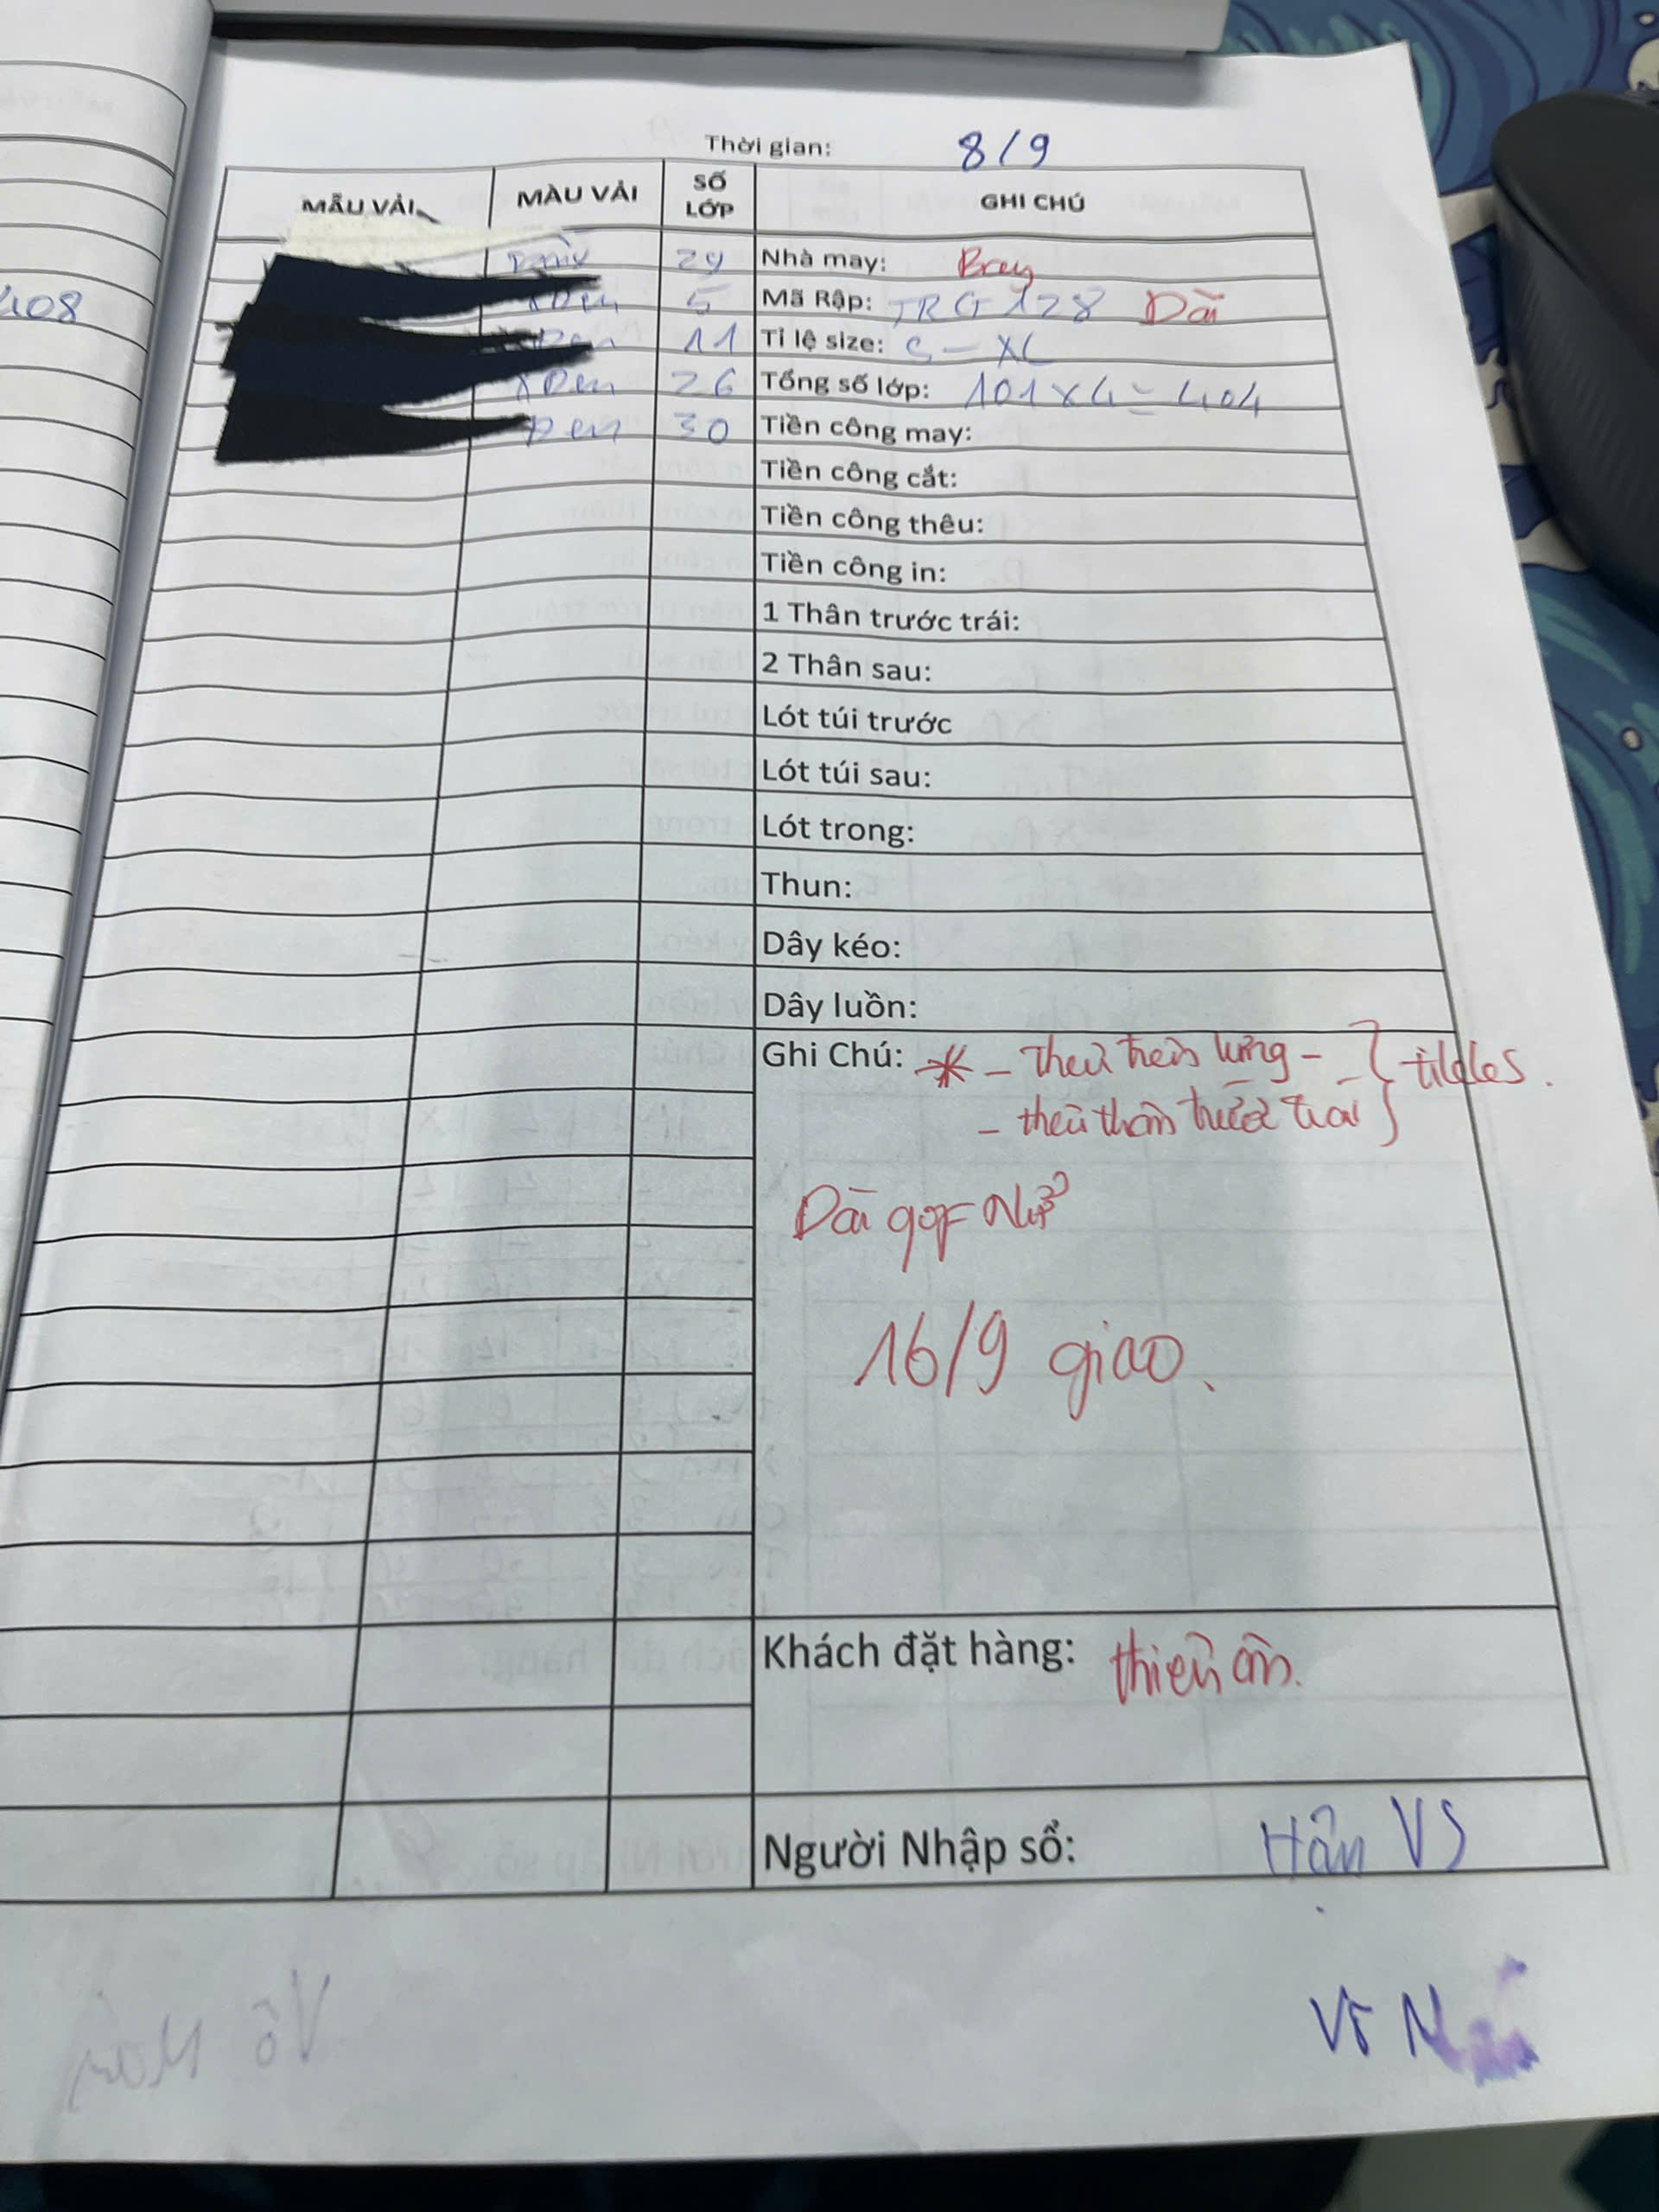 408
Thời gian: 8/9
MẪU VẢI MÀU VẢI SỐ LỚP GHI CHÚ
29 Nhà may: Brey
Đen 5 Mã Rập: TRG 128 Dài
Đen 11 Tỉ lệ size: S - XL
XĐen 26 Tổng số lớp: 101 x 4 = 404
Đen 30 Tiền công may:
Tiền công cắt:
Tiền công thêu:
Tiền công in:
1 Thân trước trái:
2 Thân sau:
Lót túi trước
Lót túi sau:
Lót trong:
Thun:
Dây kéo:
Dây luồn:
Ghi Chú: * - Thêu trên lưng - } tildes.
- thêu thân trước trái
Dài gọp
16/9 giao.
Khách đặt hàng: thiên ân.
Người Nhập sổ: Hân VS
Võ